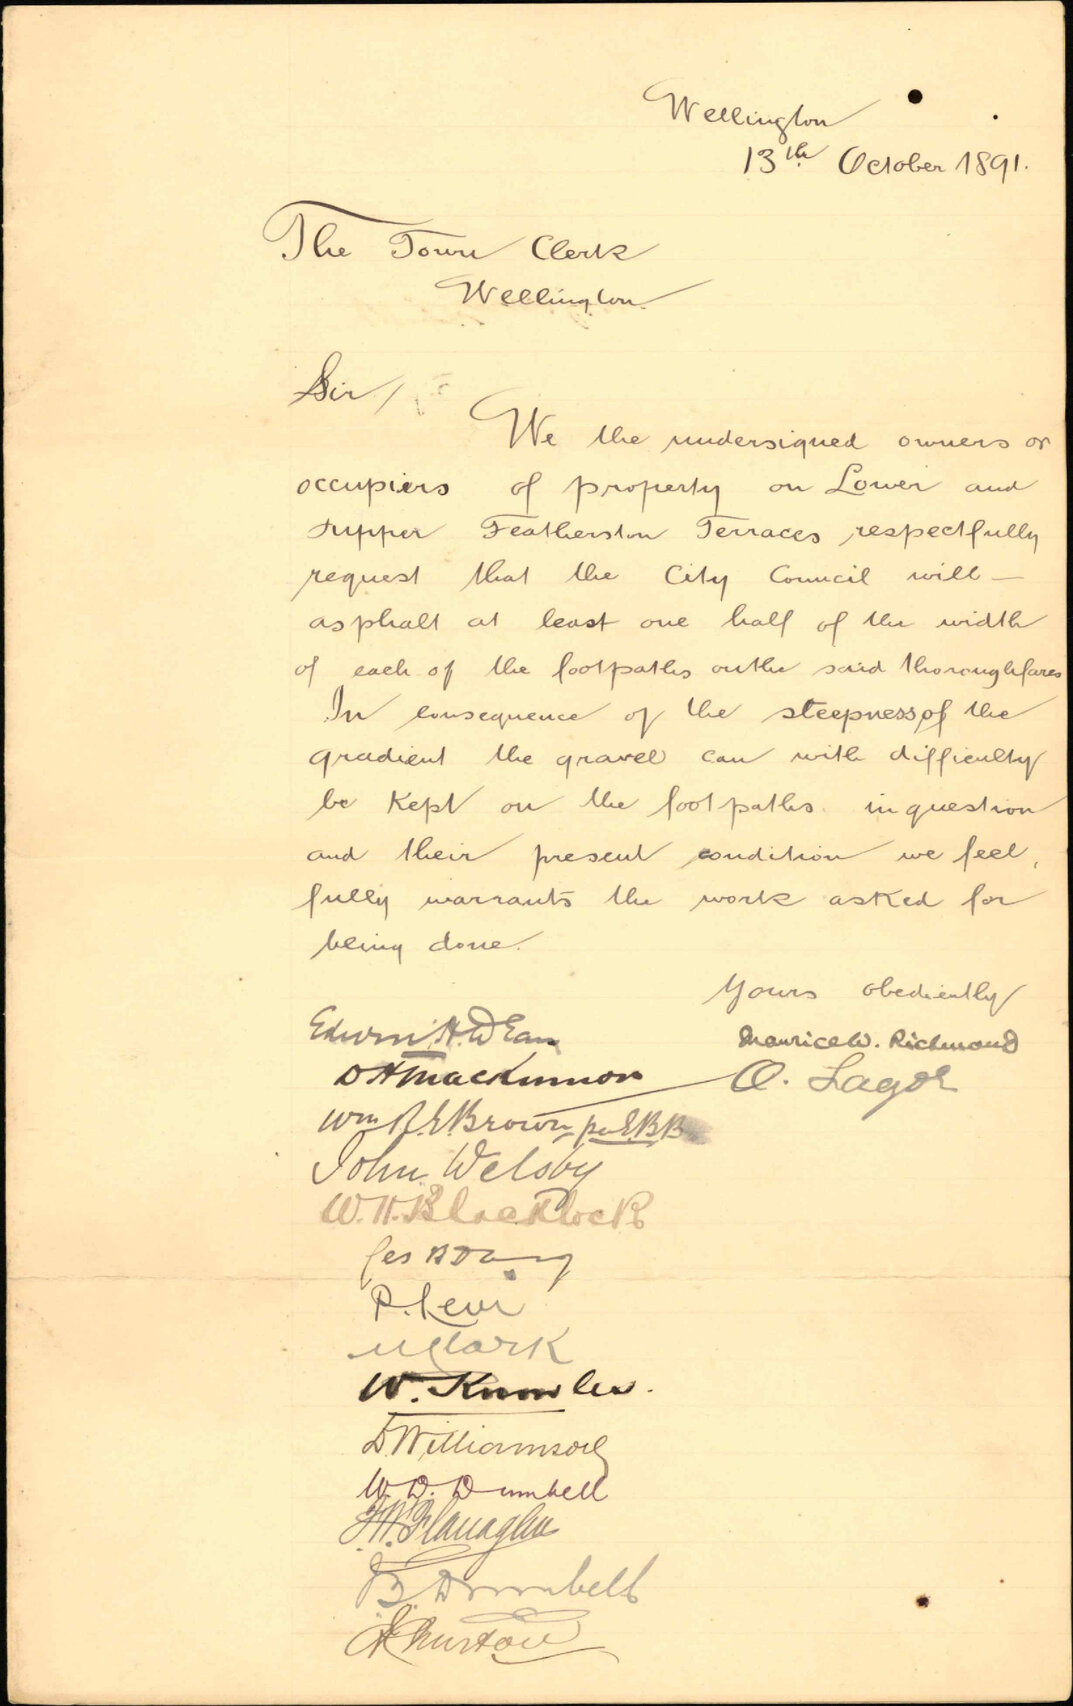 Wellington
13th October 1891.
The Town Clerk
Wellington
Sir/
We the undersigned owners or
occupiers of property on Lower and
Upper Featherston Terraces respectfully
request that the City Council will —
asphalt at least one half of the width
of each of the footpaths on the said thoroughfares
In consequence of the steepness of the
gradient the gravel can with difficulty
be kept on the footpaths in question
and their present condition we feel,
fully warrants the work asked for
being done.
Yours obediently
Edwin H. Dean
Maurice W. Richmond
D H Mackinnon
O. Lagor
Wm R. E. Brown per E.B.B
John Welsby
W. H. Blacklock
R. Levi
M Clark
W. Knowles.
D Williamson
W. D. Dumbell
J. W. Flanaghan
B. Dumbell